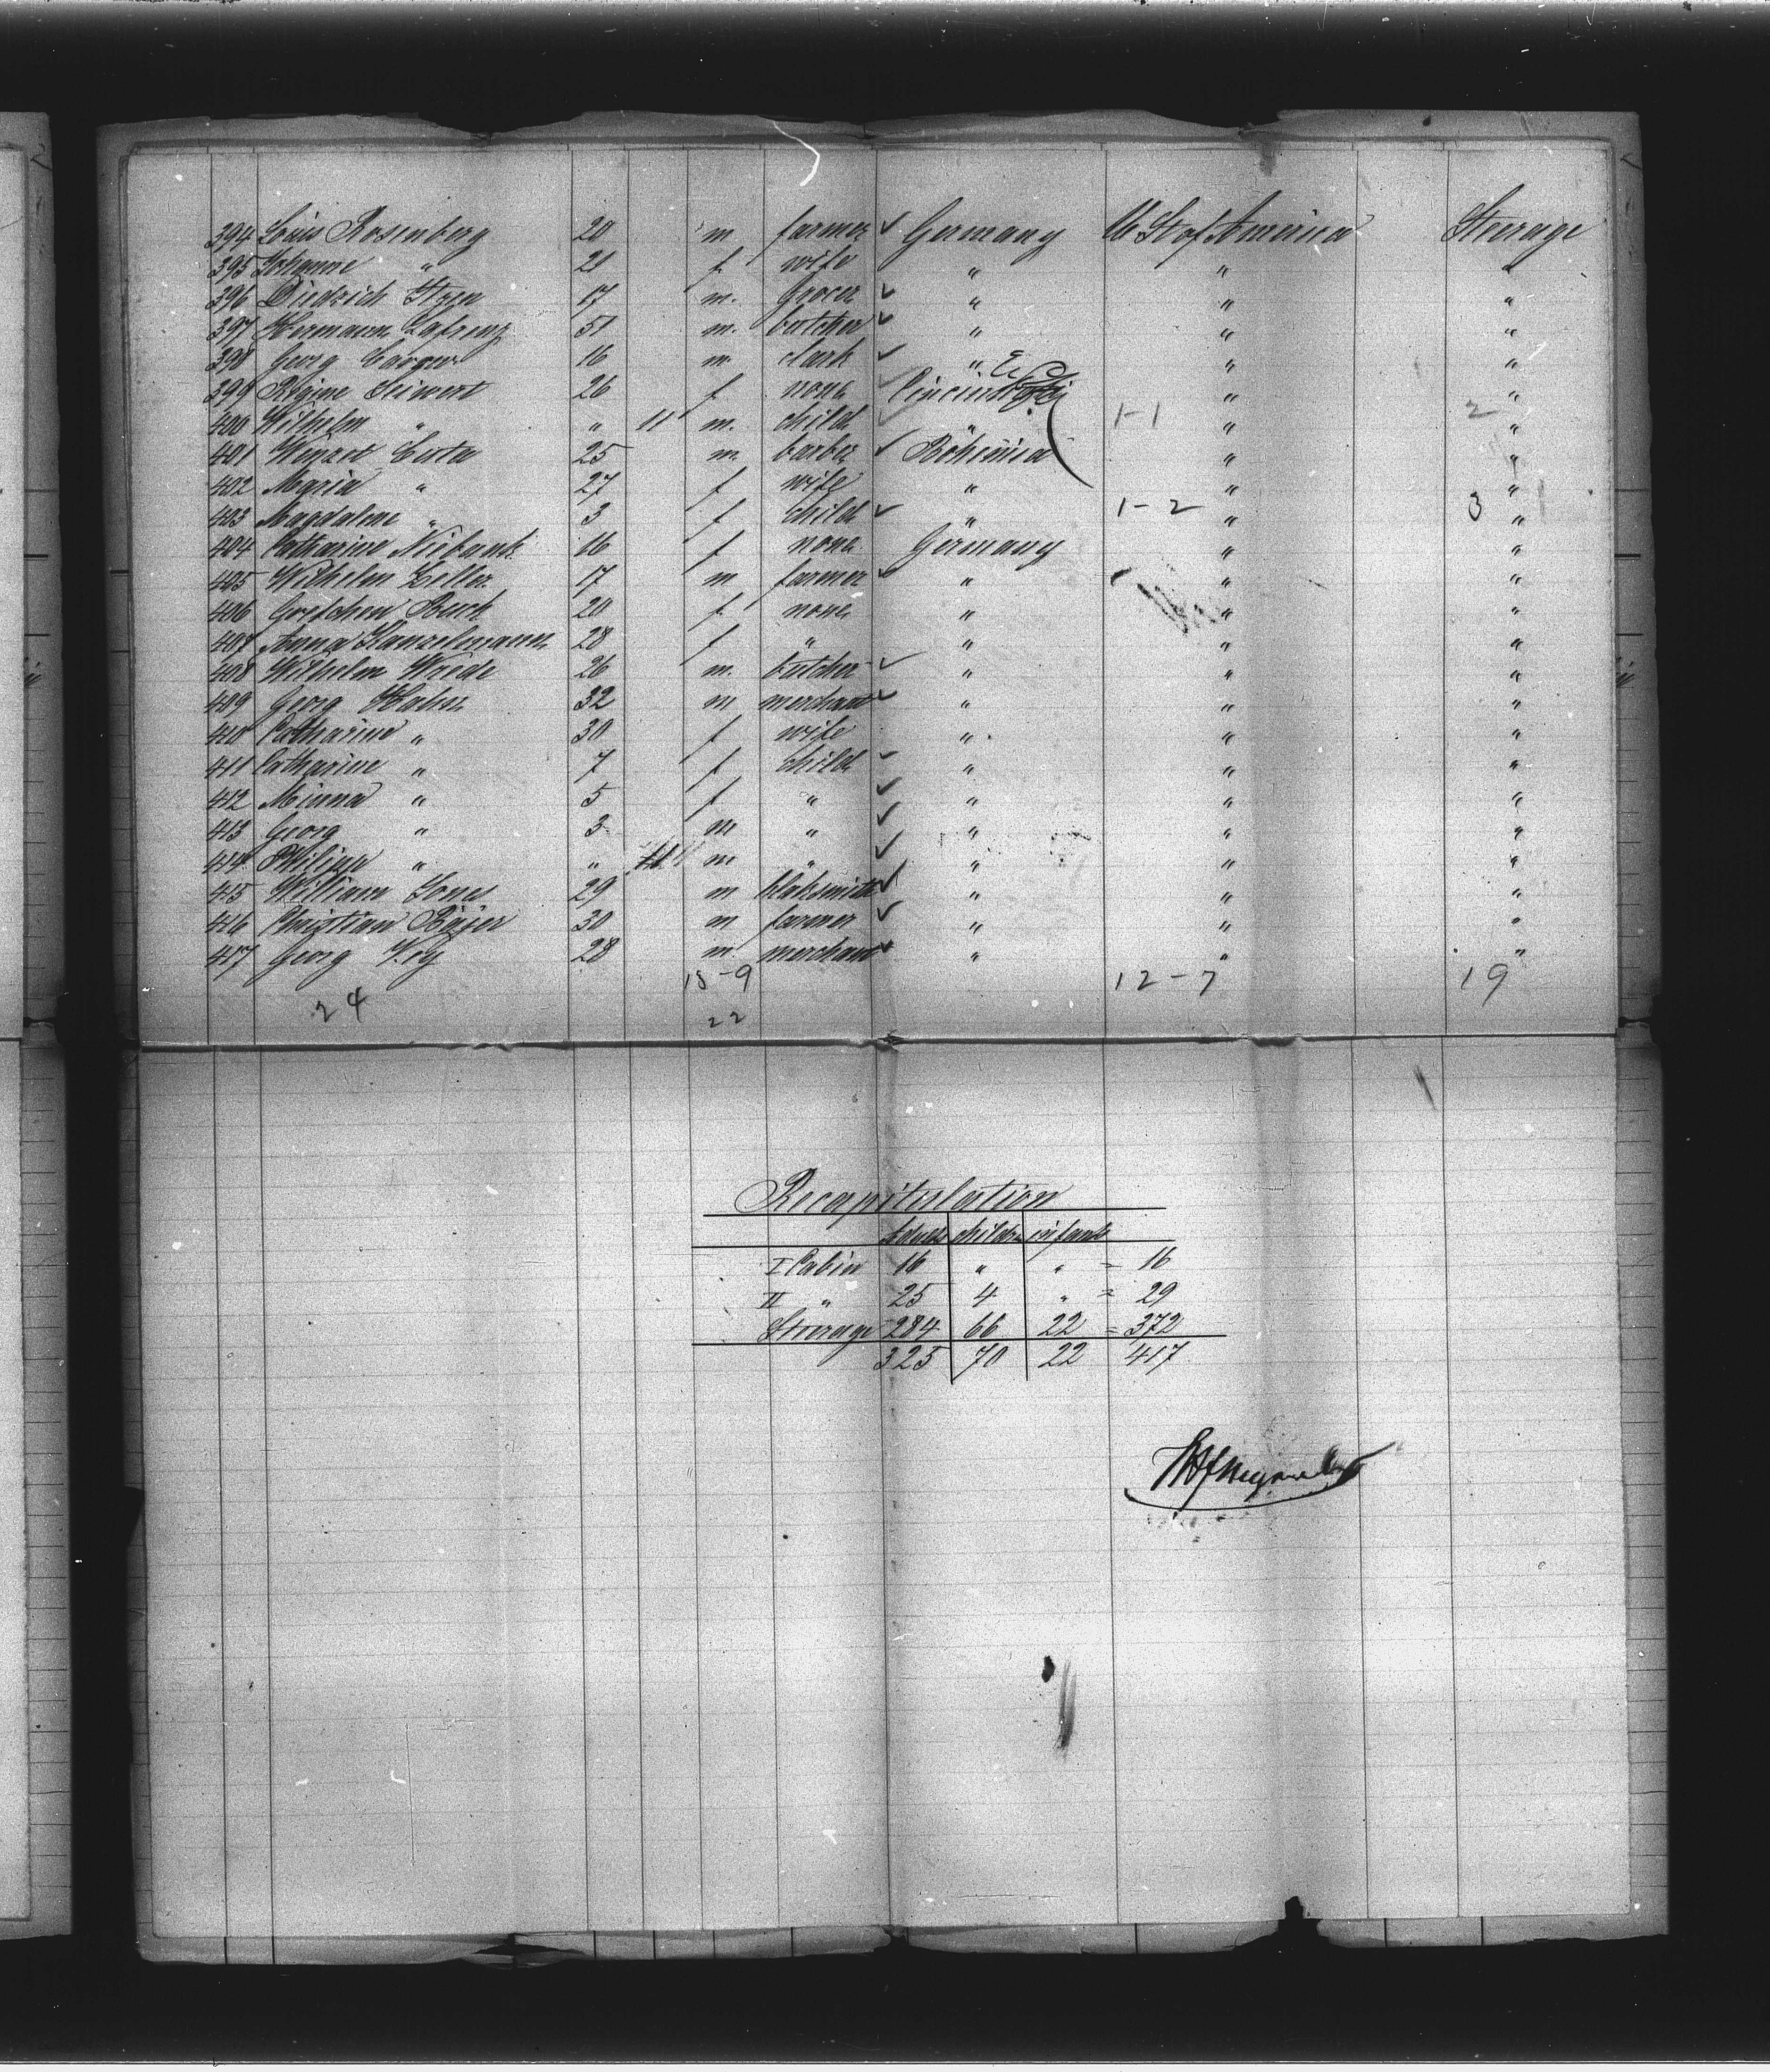 394 Louis Rosenberg 20 m farmer Germany U St of America Steerage
395 Johanne " 21 f wife " " "
396 Diedrich 17 m. grocer " " "
397 Hermann 51 m. butcher " " "
398 Georg 16 m clark " " "
399 Regine Seiwert 26 f none Cincinnati " "
400 Wilhelm " " 11 m. child " 1-1 " 2 "
401 25 m. barber Bohemia " "
402 Maria " 27 f wife " " "
403 Magdalene " 3 f child " 1-2 " 3 "
404 Catharine Niebank 16 f none Germany " "
405 Wilhelm Zeller 17 m farmer " " "
406 Gretchen Buck 20 f none " " "
407 Anna 28 f " " " "
408 Wilhelm Wrede 26 m. butcher " " "
409 Georg 32 m merchant " " "
410 Catharine " 30 f wife " " "
411 Catharine " 7 f child " " "
412 Minna " 5 f " " " "
413 Georg " 3 m " " " "
414 Philipp " " 11 m " " " "
415 William Jones 29 m blaksmith " " "
416 Christian 30 m farmer " " "
417 Georg 28 m. merchant " " "
15-9 12-7 19
24 22
Recapitulation
Adults children infants
I Cabin 16 " " = 16
II " 25 4 " = 29
Steerage 284 66 22 = 372
325 70 22 417